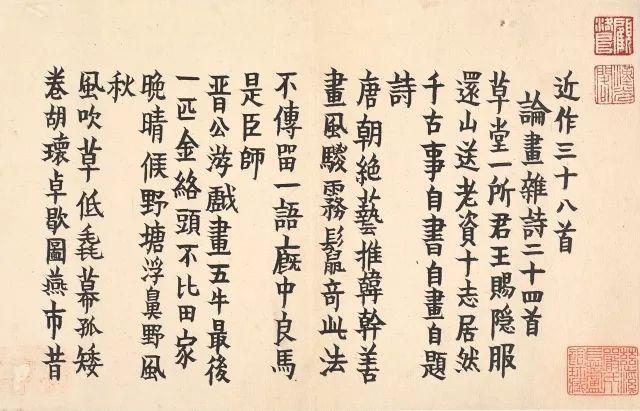 近作三十八首
論畫雜詩二十四首
草堂一所君王賜隱服
還山送老資十志居然
千古事自書自畫自題
詩
唐朝絕藝推韓幹善
畫風騣霧鬣奇此法
不傳留一語上廄中良馬
是臣師
晉公游戲畫五牛最後
一匹金絡頭不比田家
晚晴候野塘浮鼻野風
秋
風吹草低毳幕孤矮
卷胡瓌卓歇圖燕市昔